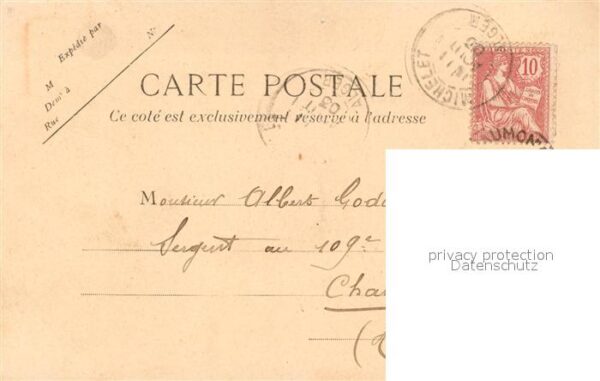 Expédié par
N°
M
Demt à
Rue
CARTE POSTALE
Ce coté est exclusivement réservé à l'adresse
MICHELET
ALGER
10
UMON
Monsieur Albert God
Sergent au 109e
Cha
privacy protection
Datenschutz